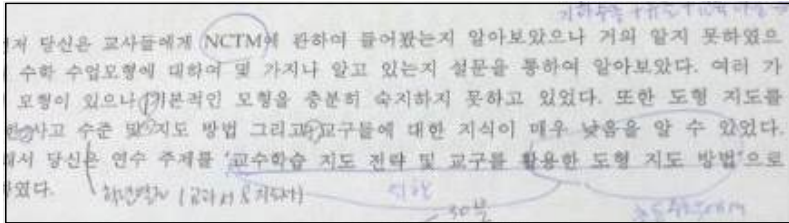 기하수준
저 당신은 교사들에게 NCTM에 관하여 들어봤는지 알아보았으나 거의 알지 못하였으
수학 수업모형에 대하여 몇 가지나 알고 있는지 설문을 통하여 알아보았다. 여러 가
모형이 있으나 기본적인 모형을 충분히 숙지하지 못하고 있었다. 또한 도형 지도를
한 사고 수준 및 지도 방법 그리고 교구들에 대한 지식이 매우 낮음을 알 수 있었다.
해서 당신은 연수 주제를 '교수학습 지도 전략 및 교구를 활용한 도형 지도 방법'으로
하였다. (교과서 & 지도서)
30분